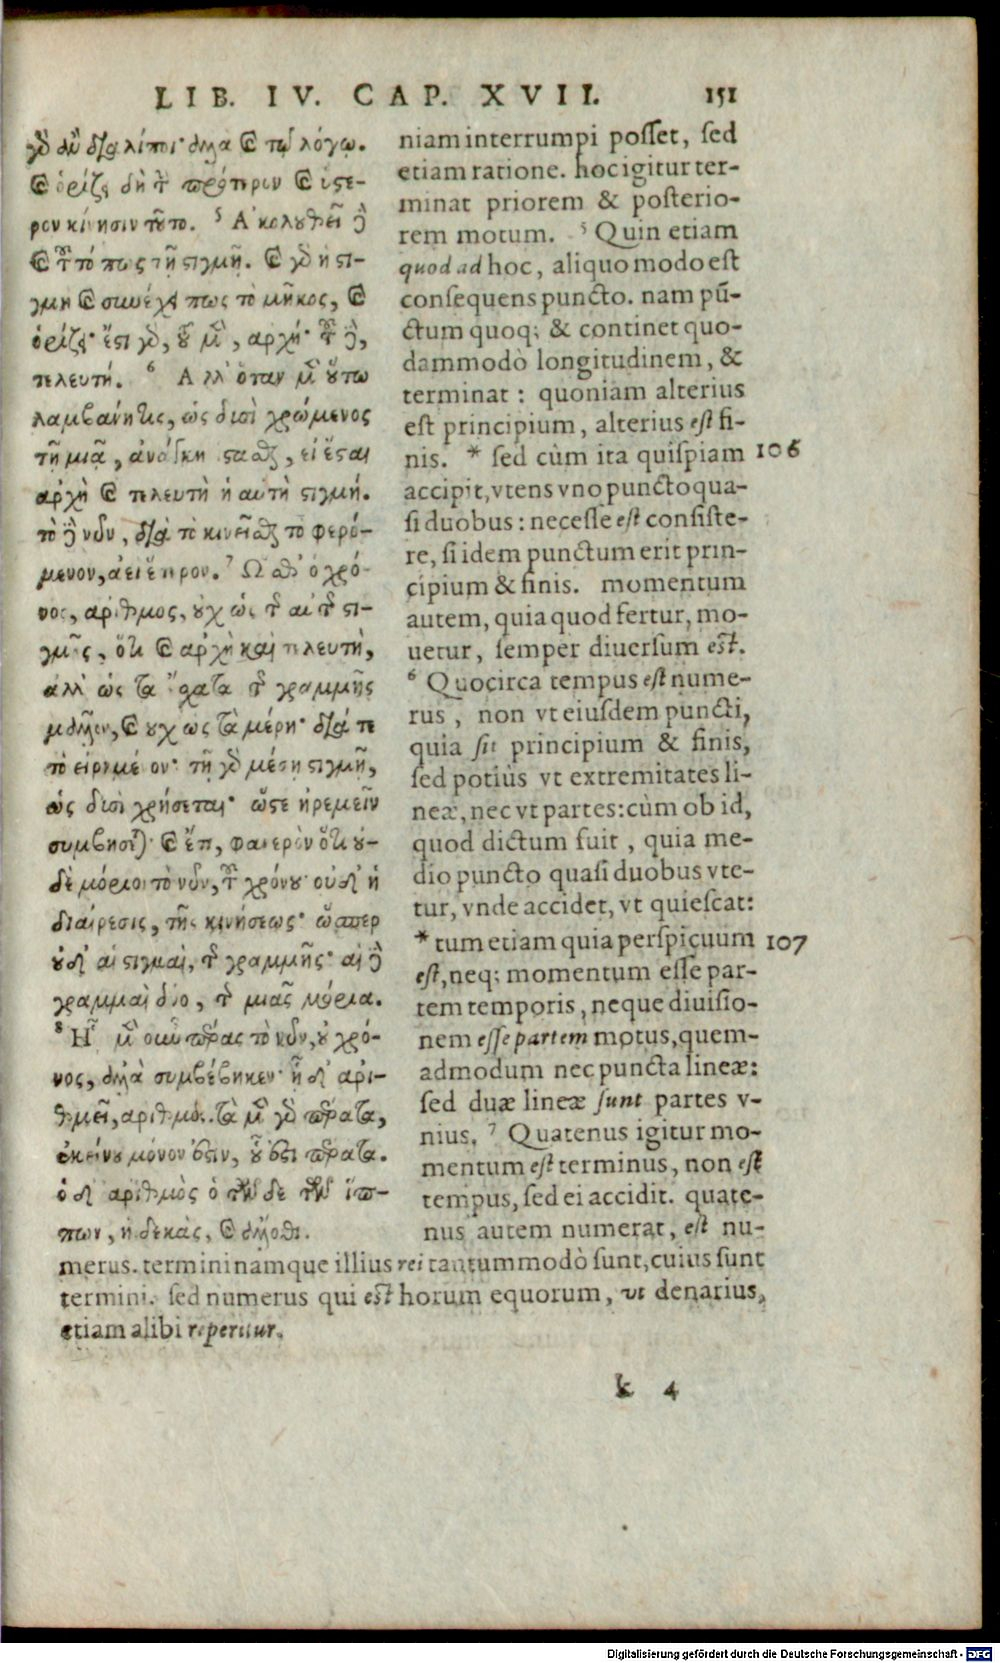 LIB. IV. CAP. XVII. 151
γὰρ ἂν διαλίποι· ἀλλὰ καὶ τῷ λόγῳ.
καὶ ὁρίζει δὴ τὴν πρότερον καὶ ὕστε-
ρον κίνησιν τοῦτο. ⁵ Ἀκολουθεῖ δὲ
καὶ τοῦτό πως τῇ στιγμῇ. καὶ γὰρ ἡ στι-
γμὴ καὶ συνέχει πως τὸ μῆκος, καὶ
ὁρίζει· ἔστι γὰρ, τοῦ μὲν, ἀρχή· τοῦ δὲ,
τελευτή. ⁶ Ἀλλ' ὅταν μὲν οὕτω
λαμβάνῃ τις, ὡς δυσὶ χρώμενος
τῇ μιᾷ, ἀνάγκη ἵστασθαι, εἰ ἔσται
ἀρχὴ καὶ τελευτὴ ἡ αὐτὴ στιγμή.
τὸ δὲ νῦν, διὰ τὸ κινεῖσθαι τὸ φερό-
μενον, ἀεὶ ἕτερον. ⁷ Ὥσθ' ὁ χρό-
νος, ἀριθμὸς, οὐχ ὡς τῆς αὐτῆς στι-
γμῆς, ὅτι καὶ ἀρχὴ καὶ τελευτὴ,
ἀλλ' ὡς τὰ ἔσχατα τῆς γραμμῆς
μᾶλλον, καὶ οὐχ ὡς τὰ μέρη· διά τε
τὸ εἰρημένον· τῇ γὰρ μέσῃ στιγμῇ,
ὡς δυσὶ χρήσεται· ὥστε ἠρεμεῖν
συμβήσεται· καὶ ἔτι, φανερὸν ὅτι οὐ-
δὲ μόριον τὸ νῦν, τοῦ χρόνου· οὐδ' ἡ
διαίρεσις, τῆς κινήσεως· ὥσπερ
οὐδ' αἱ στιγμαὶ, τῆς γραμμῆς· αἱ δὲ
γραμμαὶ δύο, τῆς μιᾶς μόρια.
⁸ ᾟ μὲν οὖν πέρας τὸ νῦν, οὐ χρό-
νος, ἀλλὰ συμβέβηκεν· ᾗ δ' ἀρι-
θμεῖ, ἀριθμός. τὰ μὲν γὰρ πέρατα,
ἐκείνου μόνον ἐστὶν, οὗ ἐστι πέρατα.
ὁ δ' ἀριθμὸς ὁ τῶνδε τῶν ἵπ-
πων, ἡ δεκὰς, καὶ ἄλλοθι.
niam interrumpi posset, sed
etiam ratione. hoc igitur ter-
minat priorem & posterio-
rem motum. ⁵ Quin etiam
quod ad hoc, aliquo modo est
consequens puncto. nam pū-
ctum quoq; & continet quo-
dammodò longitudinem, &
terminat: quoniam alterius
est principium, alterius est fi-
nis. * sed cùm ita quispiam 106
accipit, vtens vno puncto qua-
si duobus: necesse est consiste-
re, si idem punctum erit prin-
cipium & finis. momentum
autem, quia quod fertur, mo-
uetur, semper diuersum est.
⁶ Quocirca tempus est nume-
rus, non vt eiusdem puncti,
quia sit principium & finis,
sed potiùs vt extremitates li-
neæ, nec vt partes: cùm ob id,
quod dictum fuit, quia me-
dio puncto quasi duobus vte-
tur, vnde accidet, vt quiescat:
* tum etiam quia perspicuum 107
est, neq; momentum esse par-
tem temporis, neque diuisio-
nem esse partem motus, quem-
admodum nec puncta lineæ:
sed duæ lineæ sunt partes v-
nius. ⁷ Quatenus igitur mo-
mentum est terminus, non est
tempus, sed ei accidit. quate-
nus autem numerat, est nu-
merus. termini namque illius rei tantummodò sunt, cuius sunt
termini. sed numerus qui est horum equorum, vt denarius,
etiam alibi reperitur.
k 4
Digitalisierung gefördert durch die Deutsche Forschungsgemeinschaft - DFG